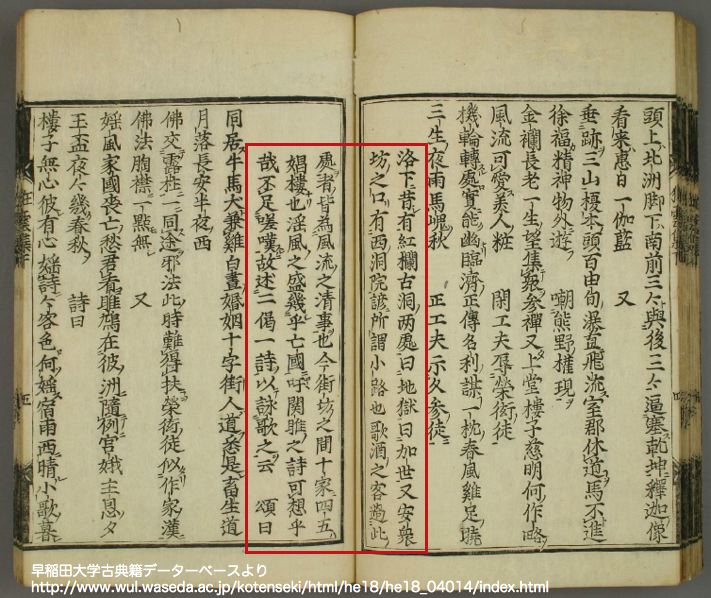 頭上北洲脚下南前三々與後三々逼塞乾坤釋迦像
看来惠日一伽藍　又
垂跡三山榎本頭百由旬瀑直飛流室郡休道馬不進
徐福精神物外遊　嘲熊野權現
金襴長老一生望集衆參禪又上堂樓子慈明何作略
風流可愛美人粧　閑工夫辱榮衒徒
機輪轉處實能幽臨濟正傳名利謀一枕春風雞足曉
三生夜雨馬嵬秋　正工夫示久參徒
洛下昔有紅欄古洞两處曰地獄曰加世又安衆
坊之口有西洞院諺所謂小路也歌酒之客過此
處者皆為風流之清事也今街坊之間十家四五
娼樓也淫風之盛幾乎亡國吁関雎之詩可想乎
哉不足嗟嘆故述二偈一詩以詠歌之云　頌曰
同居牛馬犬兼雞白晝婚姻十字街人道悉是畜生道
月落長安半夜西
佛交露柱一同途邪法此時難得扶榮衒徒似作家漢
佛法胸襟一點無　又
婬風家國喪亡愁君看雎鳩在彼洲隨例宮娥主恩夕
玉盃夜々幾春秋　詩曰
樓子無心彼有心婬詩々客色何婬宿雨西晴小歌暮
早稲田大学古典籍データーベースより
http://www.wul.waseda.ac.jp/kotenseki/html/he18/he18_04014/index.html